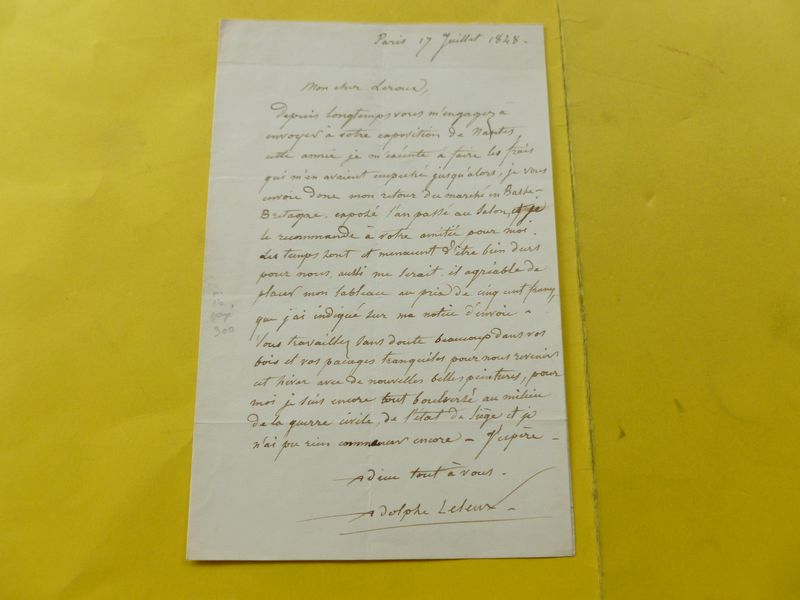 Paris 17 Juillet 1848 -
Mon cher Leroux,
Depuis longtemps vous m'engagez à
envoyer à votre exposition de Nantes,
cette année je m'exécute à faire les frais
qui m'en avaient empêché jusqu'alors, je vous
envoie donc mon retour du marché en Basse-
Bretagne, exposé l'an passé au Salon, et je
le recommande à votre amitié pour moi.
Les temps sont et menacent d'être bien durs
pour nous, aussi me serait il agréable de
placer mon tableau au prix de cinq cent francs,
que j'ai indiqué sur ma notice d'envoie -
Vous travaillez sans doute beaucoup dans vos
bois et vos pacages tranquiles pour nous revenir
cet hiver avec de nouvelles belles peintures, pour
moi je suis encore tout boulversé au milieu
de la guerre civile, de l'état de siège et je
n'ai pu rien commencer encore - J'espère -
Adieu tout à vous -
Adolphe Leleux -
300